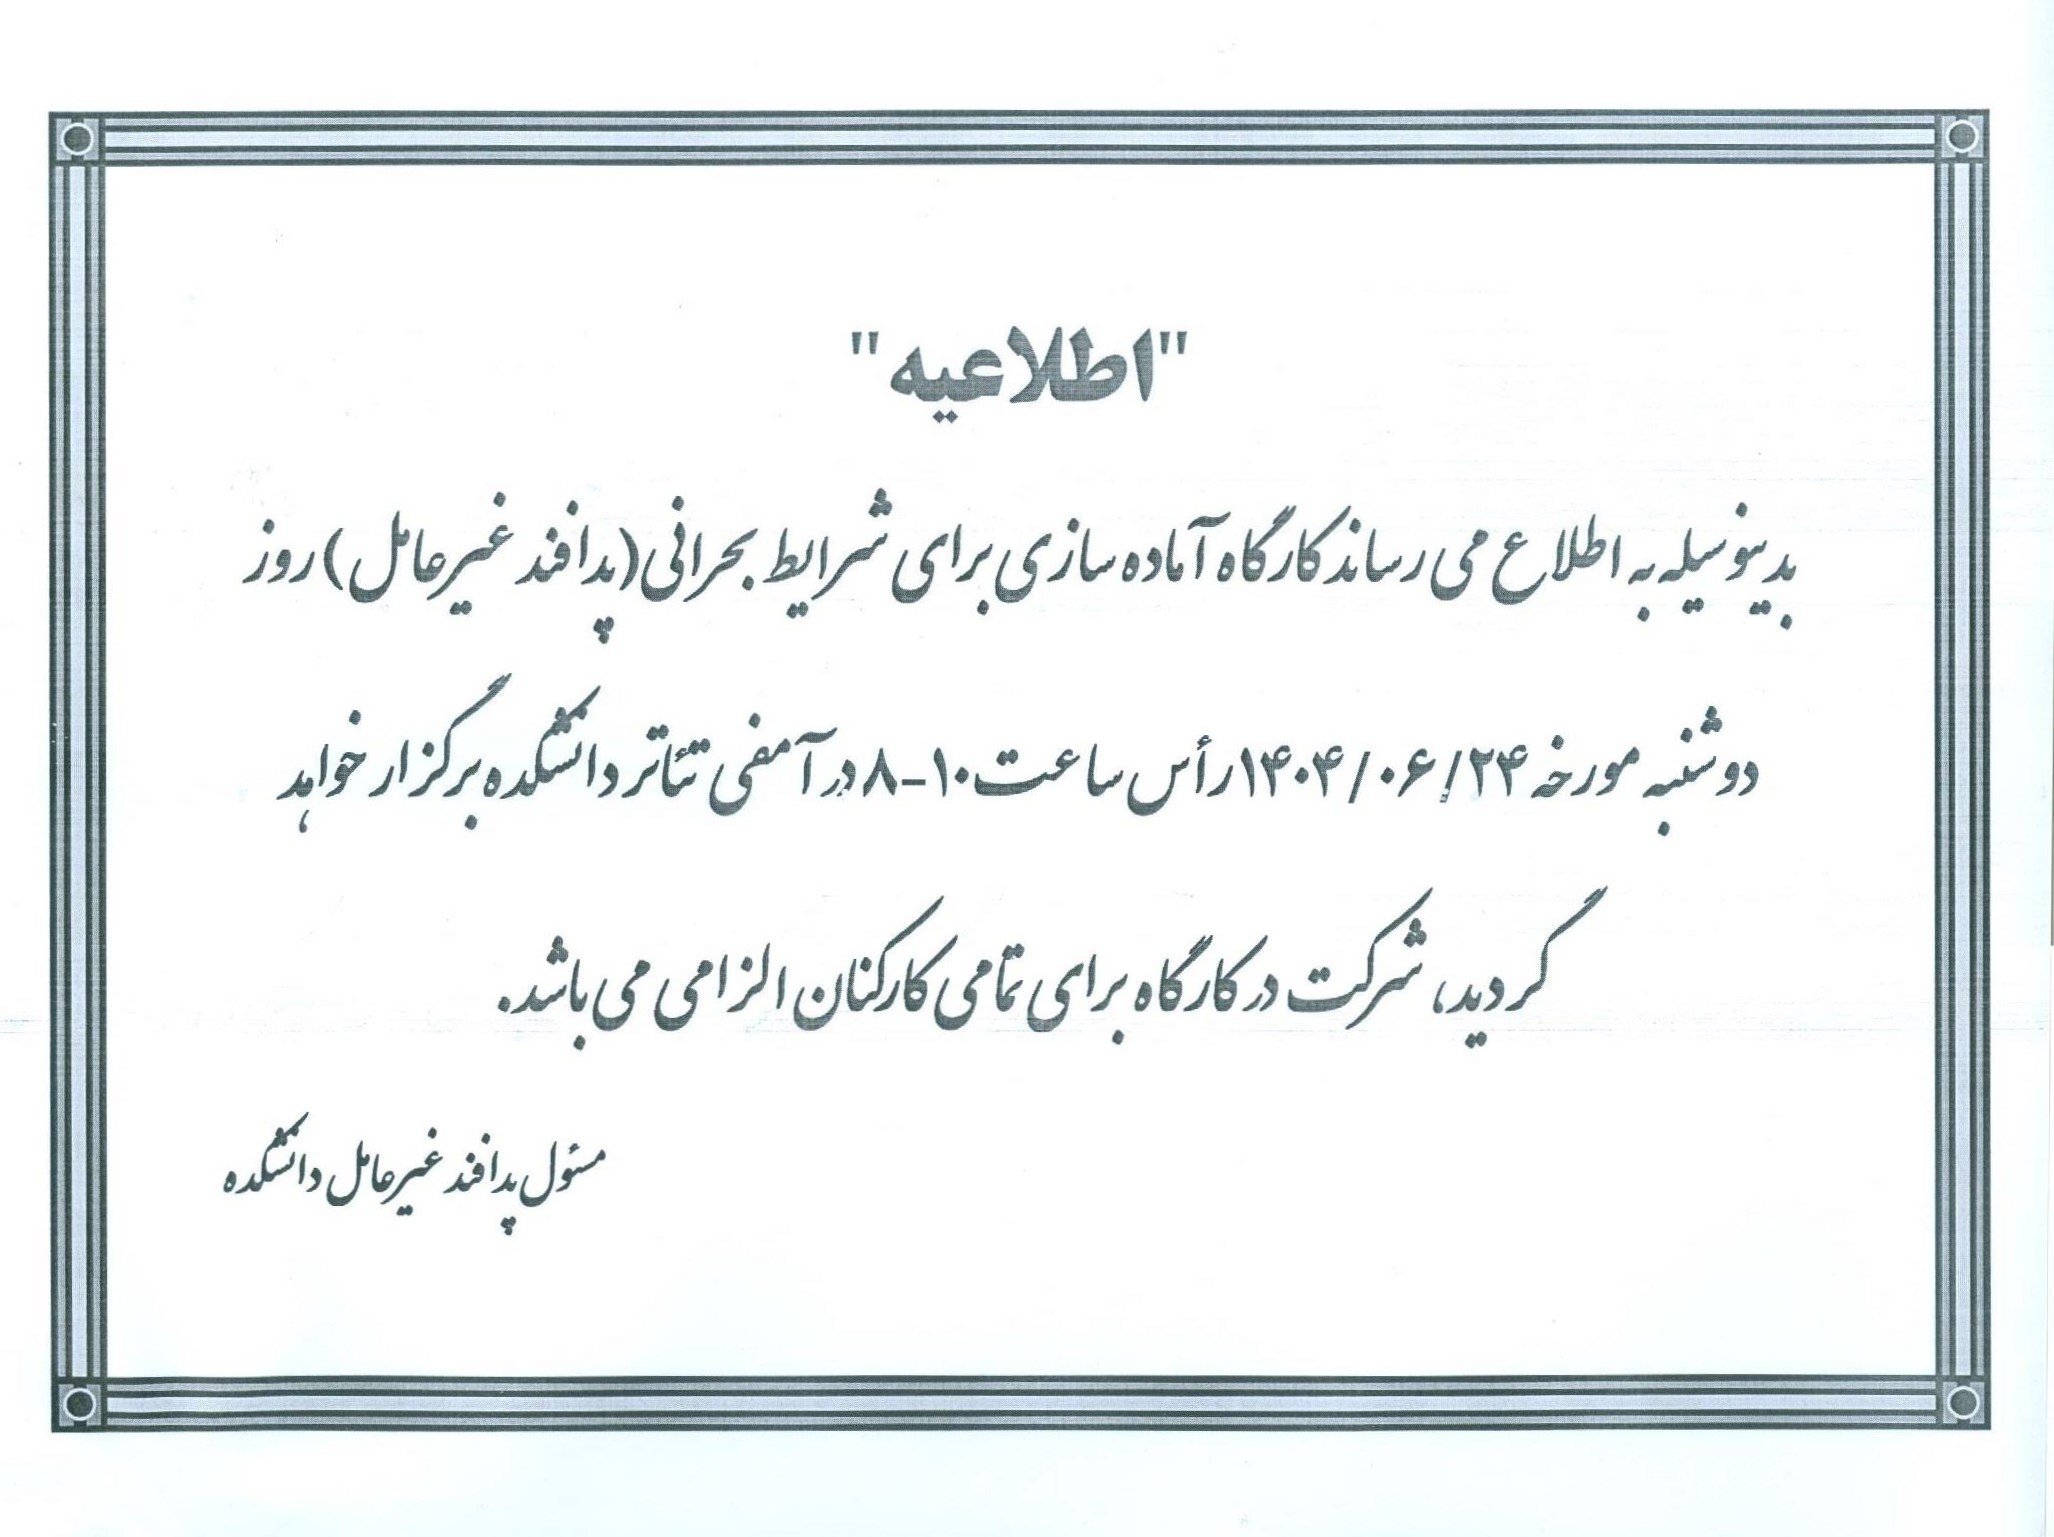 "اطلاعیه"
بدینوسیله به اطلاع می رساند کارگاه آماده سازی برای شرایط بحرانی(پدافند غیرعامل) روز
دوشنبه مورخه ۱۴۰۴/۰۶/۲۴ رأس ساعت ۱۰-۸ در آمفی تئاتر دانشکده برگزار خواهد
گردید، شرکت در کارگاه برای تمامی کارکنان الزامی می باشد.
مسئول پدافند غیرعامل دانشکده